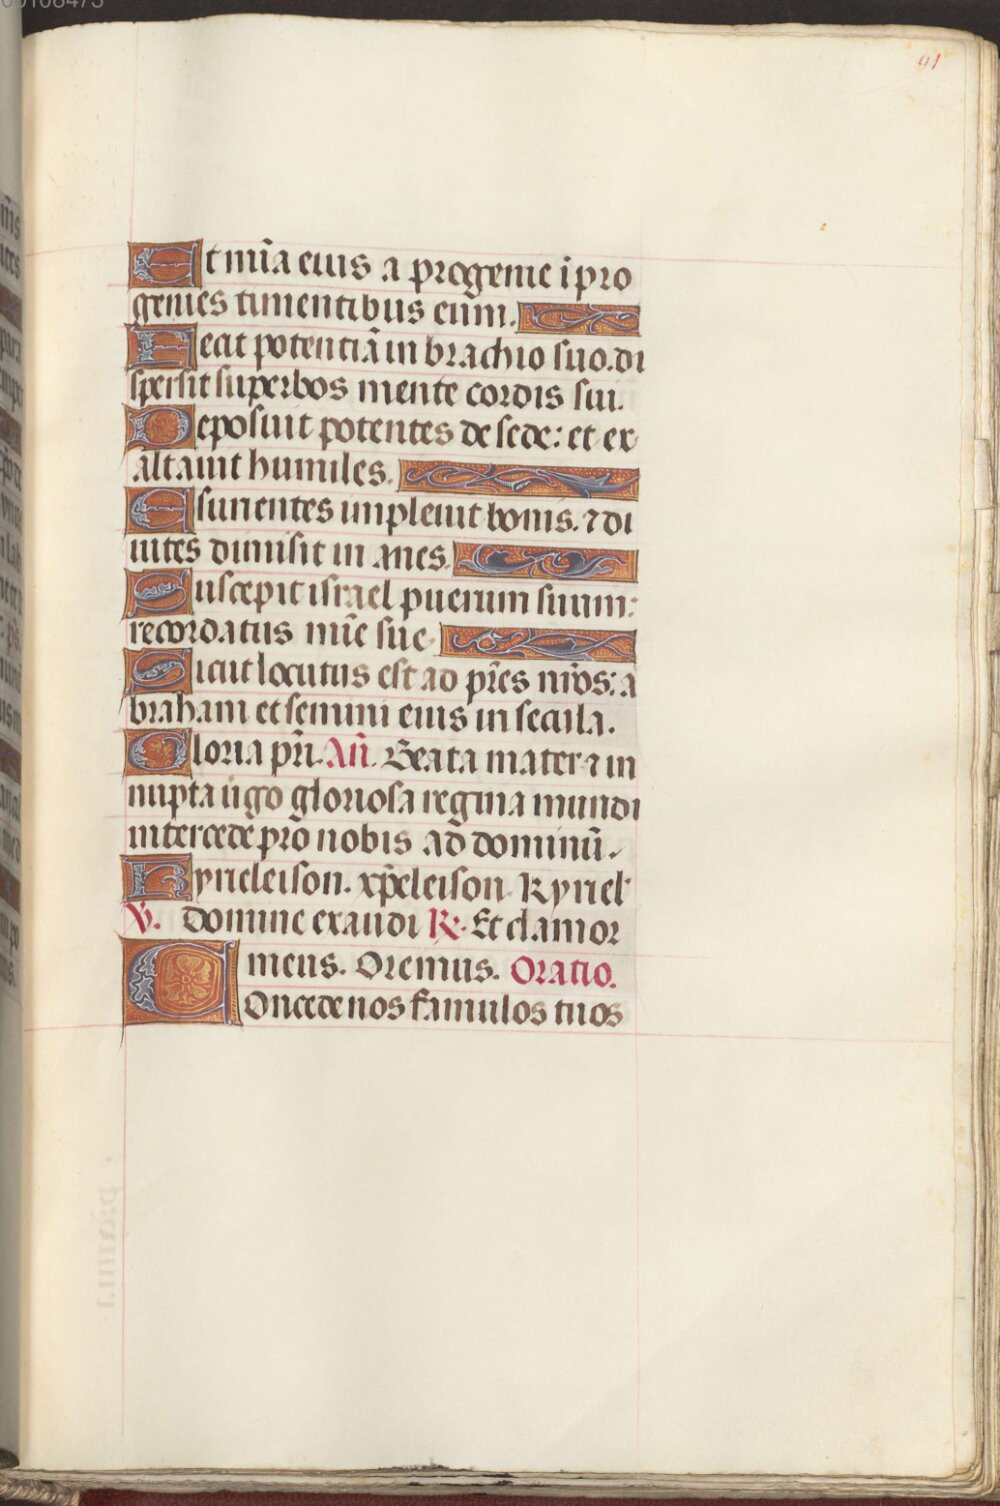 91
Et mīa eius a progenie ī pro
genies timentibus eum.
Fecit potentiā in brachio suo. di
spersit superbos mente cordis sui.
Deposuit potentes de sede: et ex
altauit humiles.
Esurientes impleuit bonis. ⁊ di
uites dimisit in anes.
Suscepit israel puerum suum:
recordatus mīe sue.
Sicut locutus est ad pr̄es nr̄os: a
braham et semini eius in secula.
Gloria pr̄i. An̄. Beata mater ⁊ in
nupta uīgo gloriosa regina mundi
intercede pro nobis ad dominū.
Kyrieleison. xp̄eleison. Kyriel'
℣. Domine exaudi ℟. Et clamor
meus. Oremus. Oratio.
Concede nos famulos tuos